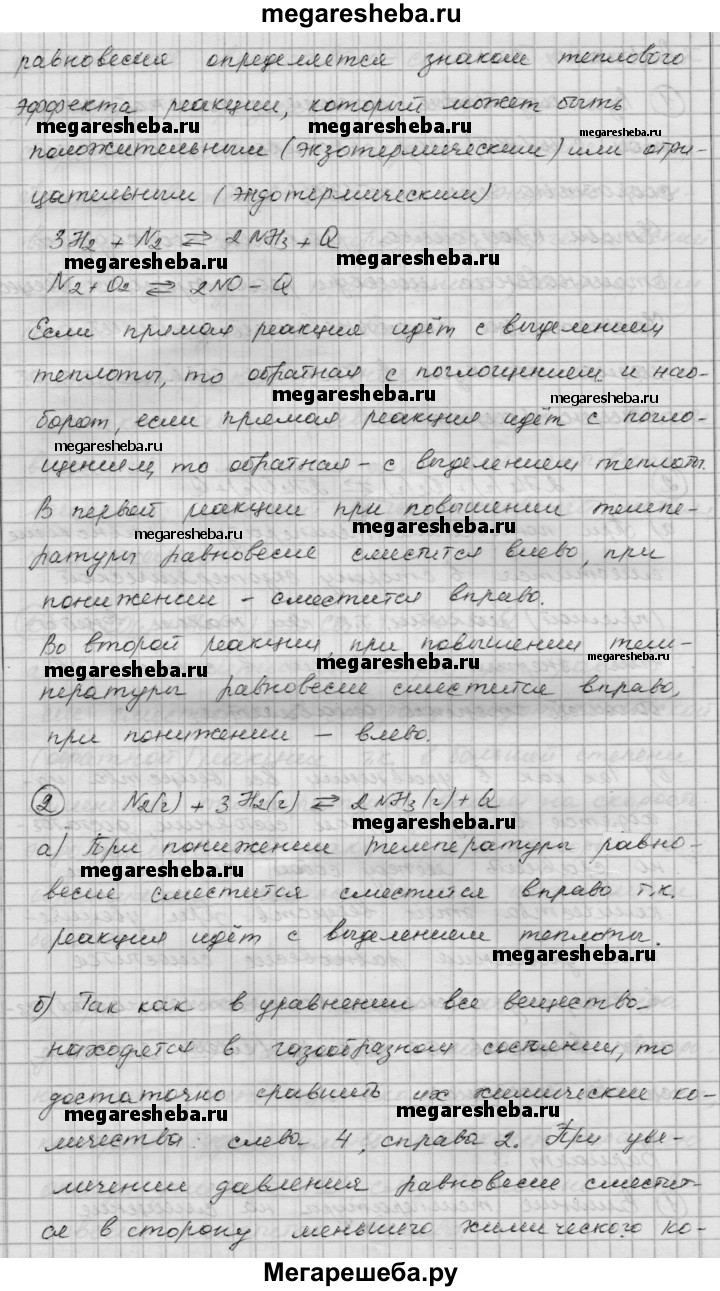 megaresheba.ru
равновесия определяется знаком теплового
эффекта реакции, который может быть
megaresheba.ru megaresheba.ru megaresheba.ru
положительным (экзотермическим) или отри-
цательным (эндотермическим)
3H2 + N2 ⇄ 2NH3 + Q
megaresheba.ru megaresheba.ru
N2 + O2 ⇄ 2NO - Q
Если прямая реакция идёт с выделением
теплоты, то обратная с поглощением и нао-
megaresheba.ru megaresheba.ru
борот, если прямая реакция идёт с погло-
megaresheba.ru
щением, то обратная - с выделением теплоты.
В первой реакции при повышении темпе-
megaresheba.ru megaresheba.ru
ратуры равновесие сместится влево, при
понижении - сместится вправо.
Во второй реакции, при повышении тем-
megaresheba.ru megaresheba.ru megaresheba.ru
пературы равновесие сместится вправо,
при понижении - влево.
2 N2(г) + 3H2(г) ⇄ 2NH3(г) + Q
megaresheba.ru megaresheba.ru
а) При понижении температуры равно-
весие сместится сместится вправо т.к.
реакция идёт с выделением теплоты.
megaresheba.ru
б) Так как в уравнении все вещества
находятся в газообразном состоянии, то
достаточно сравнить их химические ко-
megaresheba.ru megaresheba.ru
личества: слева 4, справа 2. При уве-
личении давления равновесие сместит-
ся в сторону меньшего химического ко-
Мегарешеба.ру